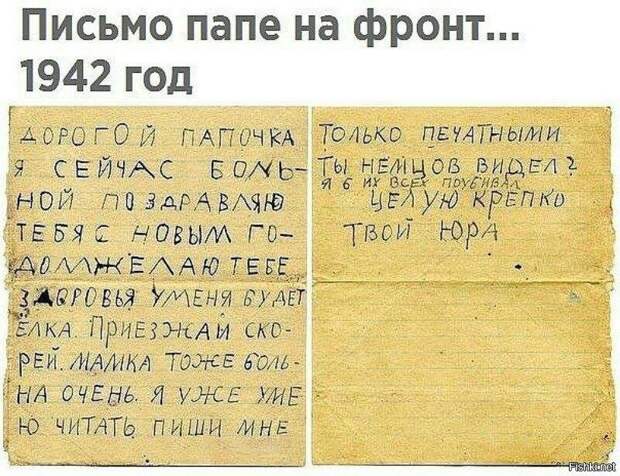 Письмо папе на фронт...
1942 год
ДОРОГОЙ ПАПОЧКА
Я СЕЙЧАС БОЛЬ-
НОЙ ПОЗДРАВЛЯЮ
ТЕБЯ С НОВЫМ ГО-
ДОМ ЖЕЛАЮ ТЕБЕ
ЗДОРОВЬЯ УМЕНЯ БУДЕТ
ЁЛКА. ПРИЕЗЖАЙ СКО-
РЕЙ. МАМКА ТОЖЕ БОЛЬ-
НА ОЧЕНЬ. Я УЖЕ УМЕ-
Ю ЧИТАТЬ ПИШИ МНЕ
ТОЛЬКО ПЕЧАТНЫМИ
ТЫ НЕМЦОВ ВИДЕЛ?
Я Б ИХ ВСЕХ ПОУБИВАЛ
ЦЕЛУЮ КРЕПКО
ТВОЙ ЮРА
Fishki.net